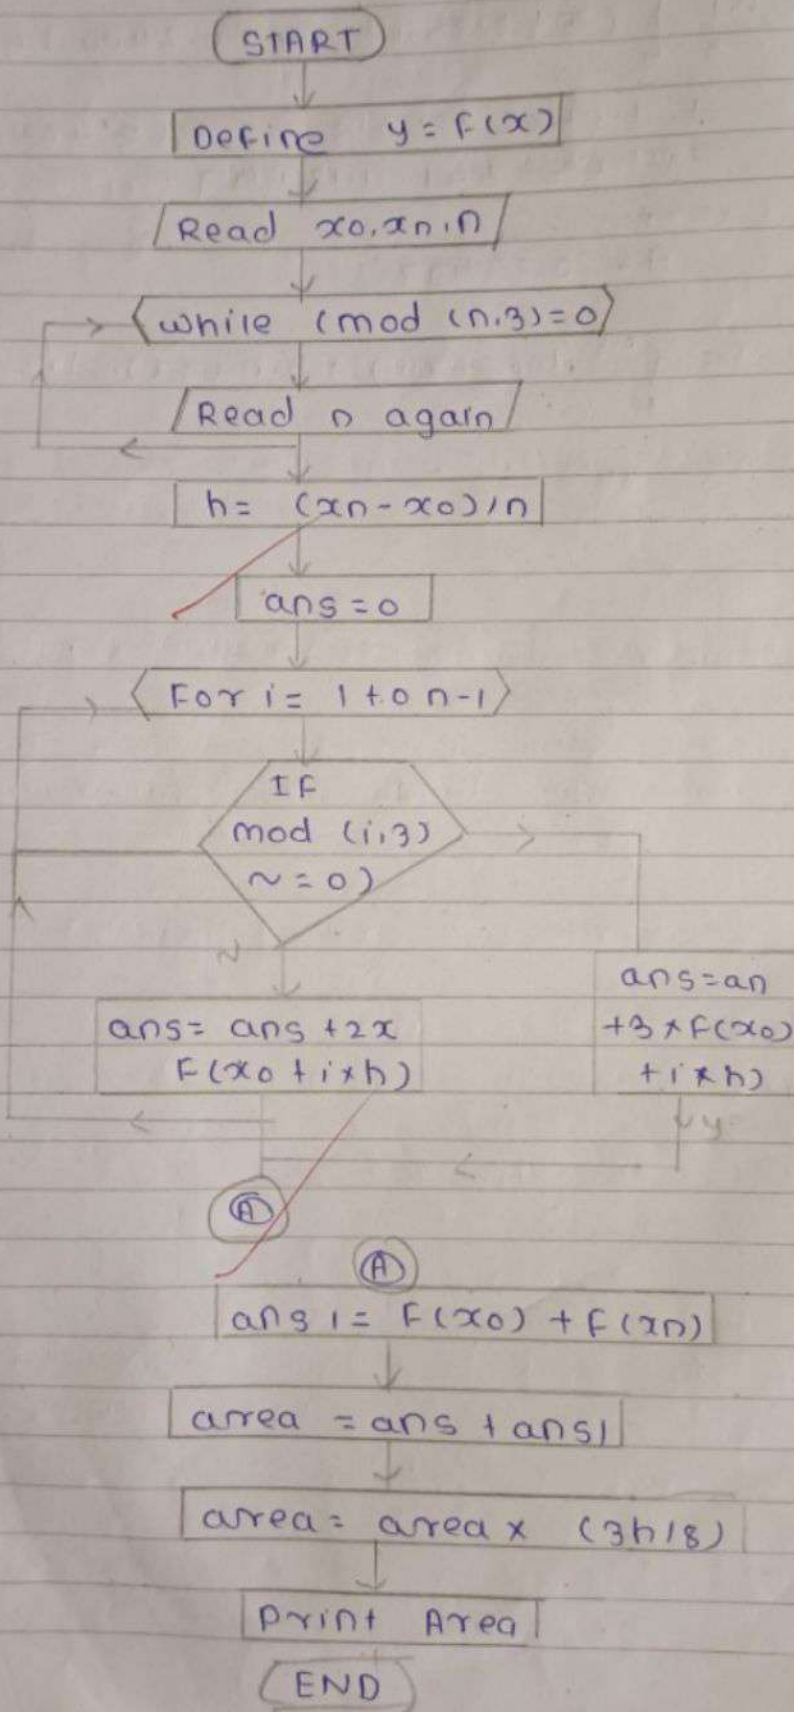 START
Define y = F(x)
Read x0, xn, n
while (mod (n,3)=0
Read n again
h= (xn - x0)/n
ans = 0
For i = 1 to n-1
IF
mod (i,3)
~ = 0)
N
ans= ans +2x
F(x0 + i*h)
ans=an
+3*F(x0)
+i*h)
y
A
A
ans1= F(x0) + F(xn)
area = ans + ans1
area= area x (3h/8)
Print Area
END